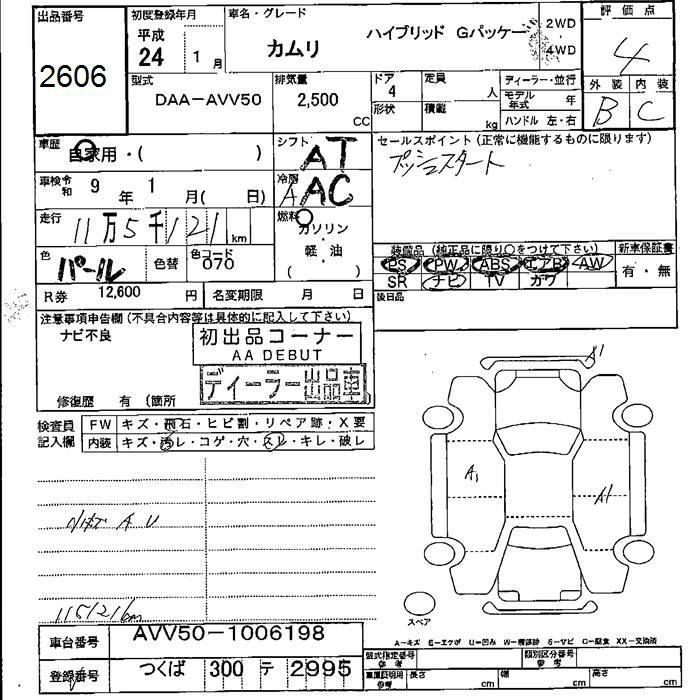 出品番号
2606
初度登録年月
平成
24 1 月
車名・グレード
カムリ ハイブリッド Gパッケー
2WD
4WD
評価点
4
外装 内装
B C
型式
DAA-AVV50
排気量
2,500 CC
ドア
4
形状
定員
人
積載
kg
ディーラー・並行
モデル年式 年
ハンドル 左・右
車歴
自家用・( )
シフト
AT
セールスポイント (正常に機能するものに限ります)
プッシュスタート
車検令和 9 年 1 月( 日)
冷房
A AC
走行
11万5千121 km
燃料
ガソリン
・
軽・油
( )
色
パール
色替
色コード
070
装備品 (純正品に限り○をつけて下さい)
PS PW ABS エアB AW
SR ナビ TV カワ
新車保証書
有・無
後日品
R券 12,600 円
名変期限 月 日
注意事項申告欄 (不具合内容等は具体的に記入して下さい)
ナビ不良
初出品コーナー
AA DEBUT
ディーラー出品車
修復歴 有 (箇所
検査員
記入欄
FW キズ・飛石・ヒビ割・リペア跡・X要
内装 キズ・汚レ・コゲ・穴・スレ・キレ・破レ
A1
A1
A1
A U
115121km
スペア
A-キズ E-エクボ U-凹み W-補修跡 S-サビ C-腐食 XX-交換済
車台番号
AVV50-1006198
登録番号
つくば 300 テ 2995
型式指定番号
参考
類別区分番号
参考
車庫証明用
参考
長さ cm
幅 cm
高さ cm